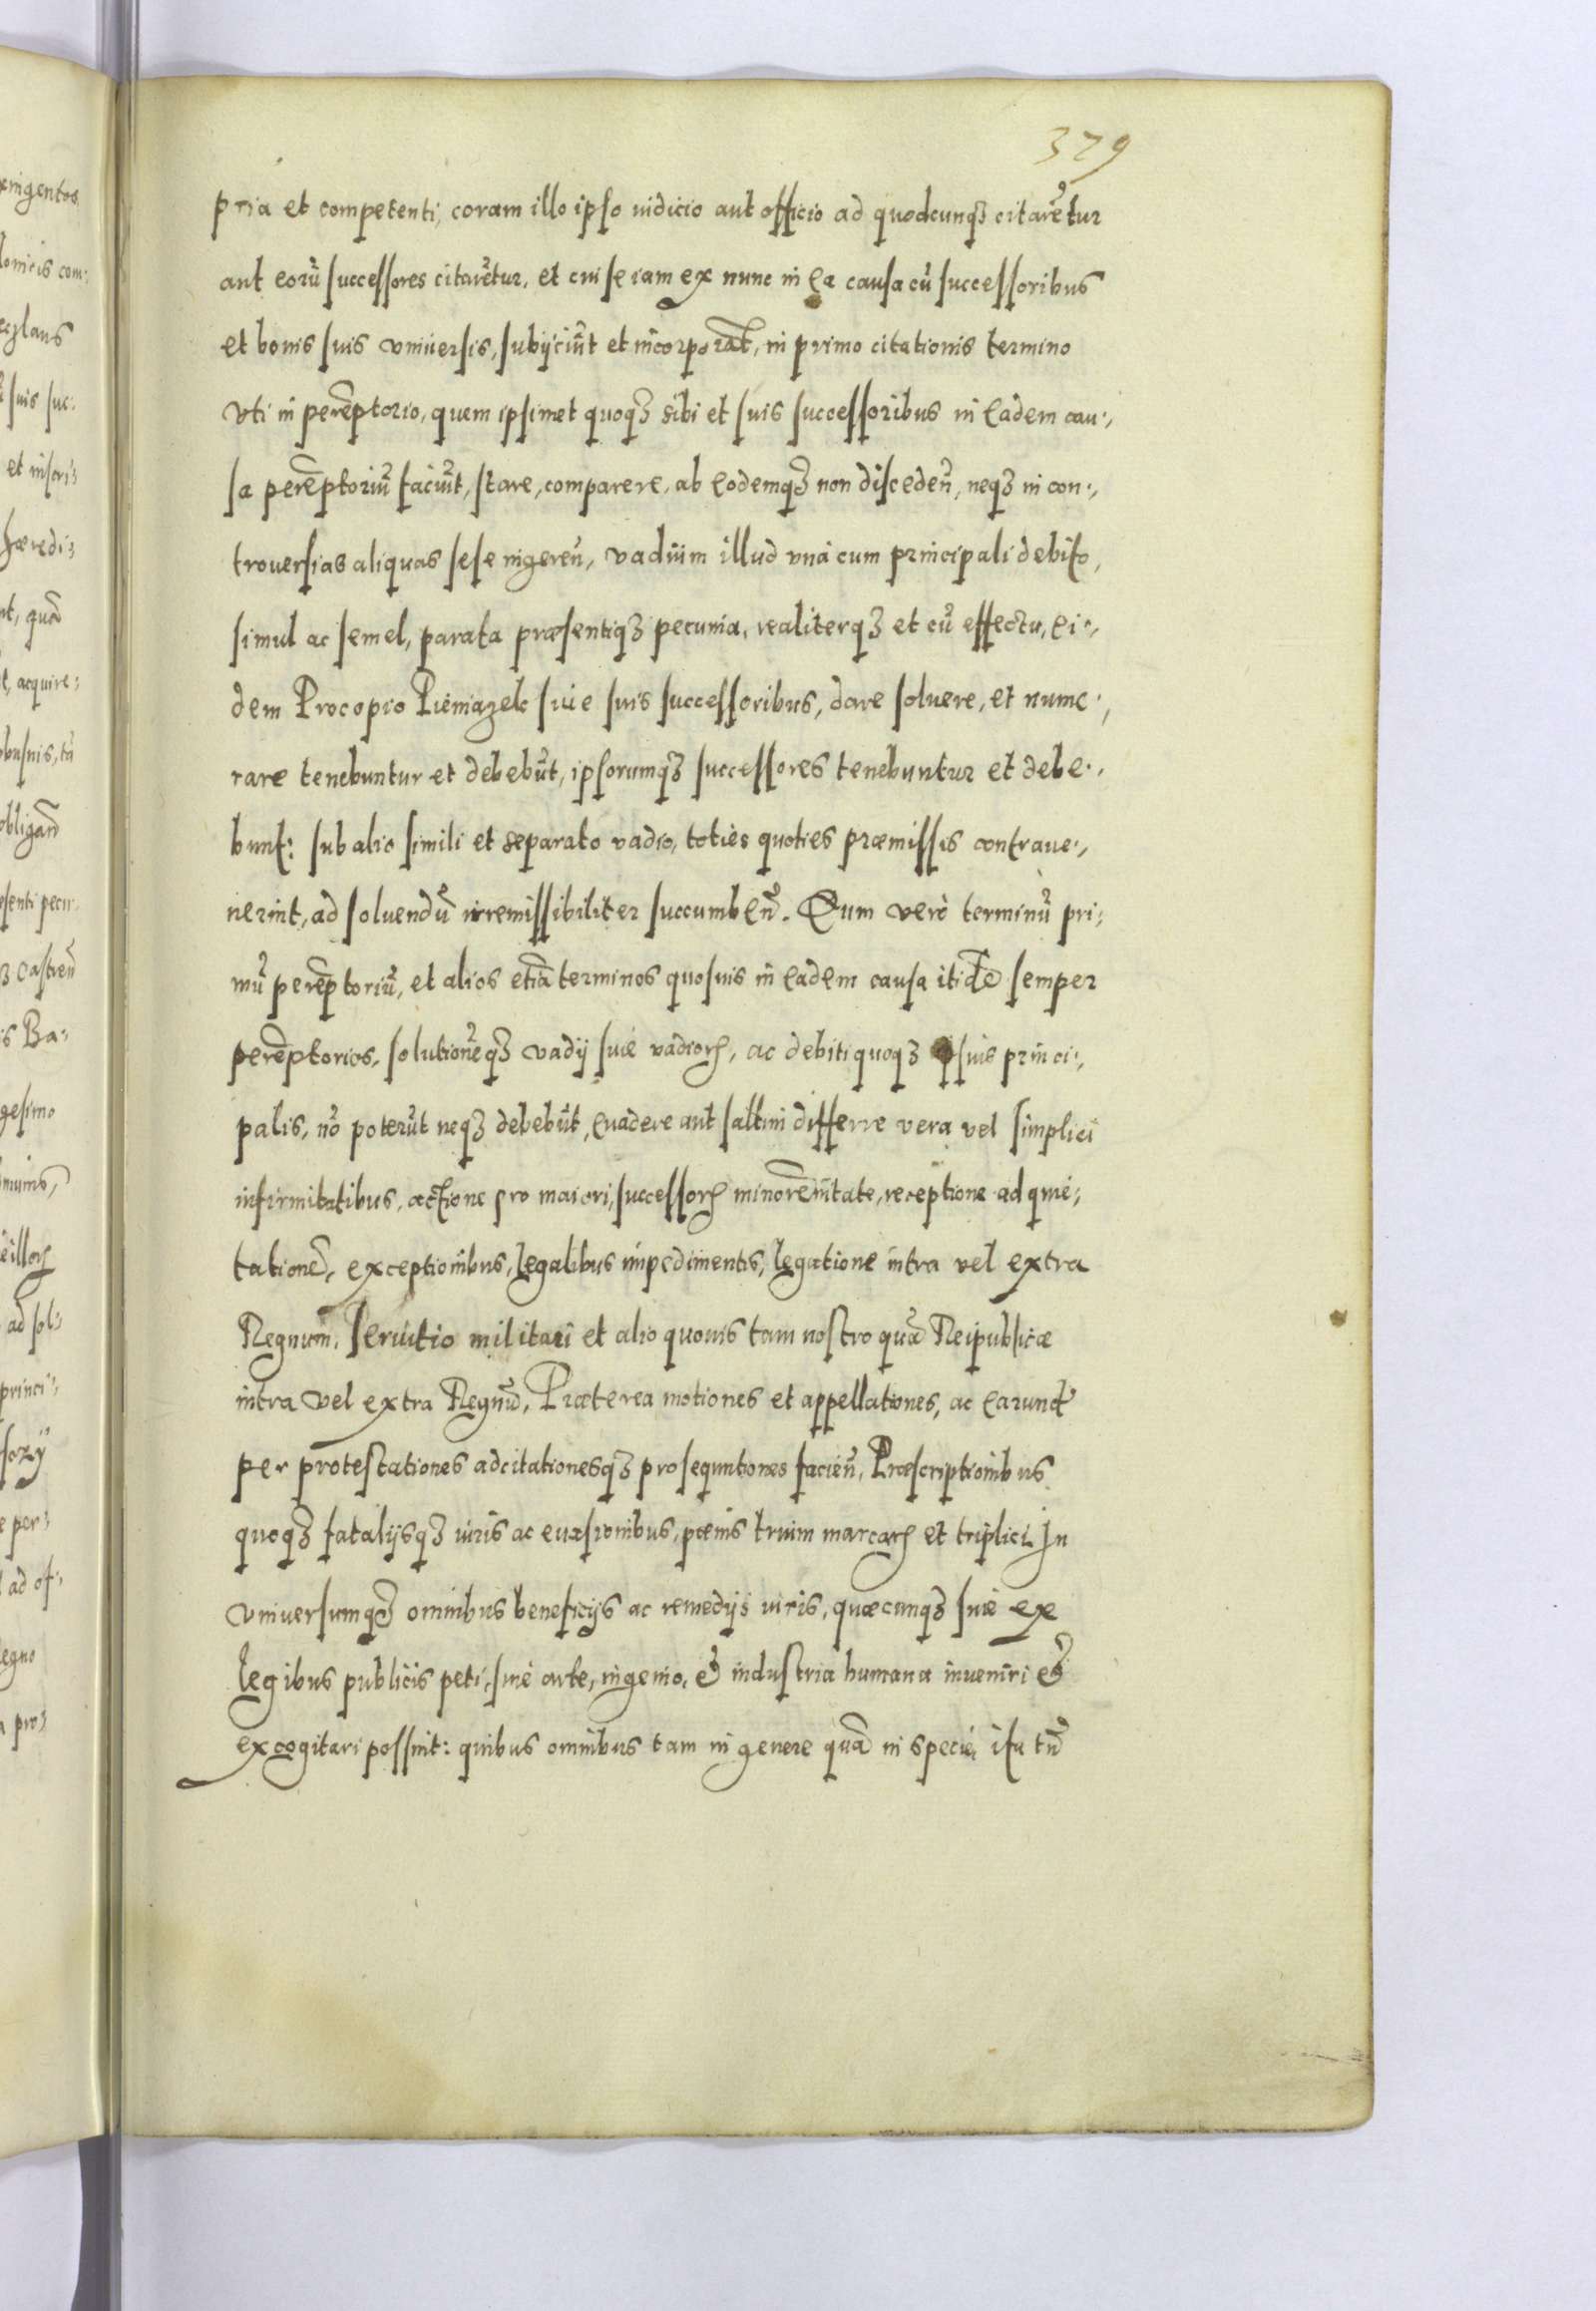 379
pria et competenti, coram illo ipso iudicio aut officio ad quodcunqꝫ citarẽtur
aut eorũ successores citarẽtur, et cui se iam ex nunc in ea causa cũ successoribus
et bonis suis vniuersis, subijciũt et incorporãt, in primo citationis termino
vti in perẽptorio, quem ipsimet quoqꝫ sibi et suis successoribus in eadem cau:,
sa perẽptoriũ faciũt, stare, comparere, ab eodemqꝫ non disceden̄, neqꝫ in con:,
trouersias aliquas sese ingeren̄, vadium illud vná cum principali debito,
simul ac semel, parata præsentiqꝫ pecunia, realiterqꝫ et cũ effectu, ei:,
dem Procopio Pieniazek siue suis successoribus, dare soluere, et nume:,
rare tenebuntur et debebũt, ipsorumqꝫ successores tenebuntur et debe:,
bunt: sub alio simili et separato vadio, toties quoties præmissis contraue:,
nerint, ad soluendũ irremissibiliter succumben̄. Quum veró terminũ pri:
mũ perẽptoriũ, et alios etiã terminos quosuis in eadem causa itidẽ semper
perẽptorios, solutionẽqꝫ vadij siue vadiorꝝ, ac debiti quoqꝫ sui princi:,
palis, nõ poterũt neqꝫ debebũt, euadere aut saltim differre vera vel simplici
infirmitatibus, actione pro maiori, successorꝝ minorẽnitate, receptione ad quie:
tationẽ, exceptionibus, legalibus impedimentis, legatione intra vel extra
Regnum, seruitio militari et alio quouis tam nostro quã Reipublicæ
intra vel extra Regnũ, Præterea motiones et appellationes, ac earundẽ
per protestationes adcitationesqꝫ prosequutiones facien̄, Præscriptionibus
quoqꝫ fatalijsqꝫ iuris ac euasionibus, pœnis trium marcarꝝ et triplici. In
vniuersumqꝫ omnibus beneficijs ac remedijs iuris, quæcunqꝫ siue ex
legibus publicis peti, siue arte, ingenio, & industria humana inueniri &
excogitari possint: quibus omnibus tam in genere quã in specie,